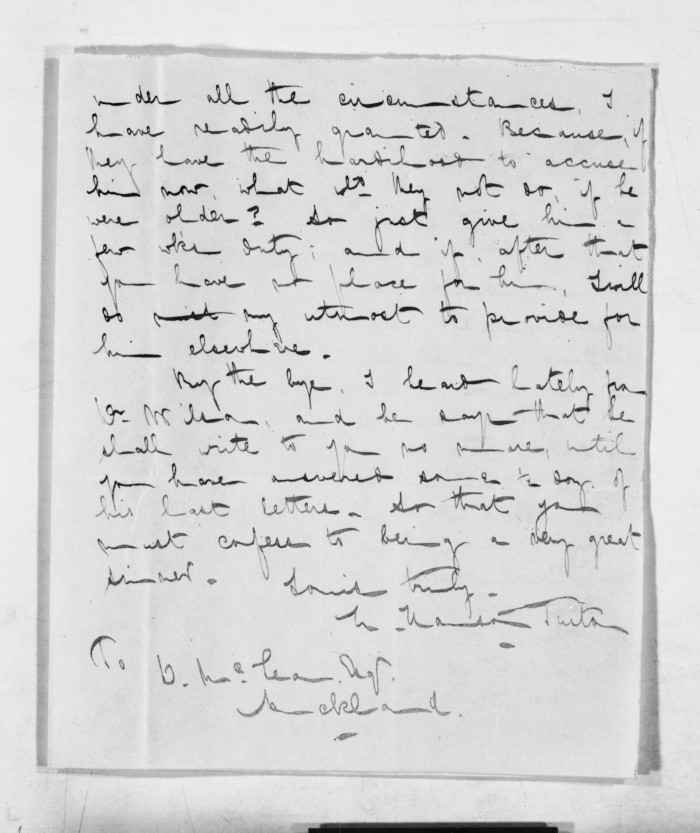 under all the circumstances, I
have readily granted. Because, if
they have the hardihood to accuse
him now, what wd. they not do, if he
were older? So just give him a
few wks duty; and if, after that
you have no place for him, I will
do my utmost to provide for
him elsewhere.
By the bye, I heard lately from
Dr. Wilson, and he says that he
shall write to you no more, until
you have answered some ½ doz. of
his last letters. So that you
must confess to being a very great
sinner.
Yours truly.
H. Hanson Turton
To D. McLean. Esqr.
Auckland.